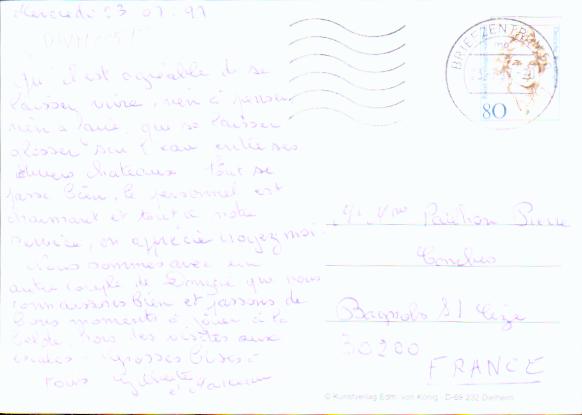 Mercredi 23 07 97
Qu'il est agréable de se
laisser vivre, rien à penser
rien à faire que se laisser
glisser sur l'eau entre ses
divers chateaux tout se
passe bien, le personnel est
charmant et tout à notre
service, on apprécie croyez moi.
Nous sommes avec un
autre couple de que nous
connaissons bien et passons de
bons moments à jouer à la
belote hors les visites aux
escales. Grosses bises à
vous
Pierre
Conches
Bagnols S/ Cèze
30200
FRANCE
BRIEFZENTRUM
80
© Kunstverlag Edm. von König · D-69 232 Dielheim